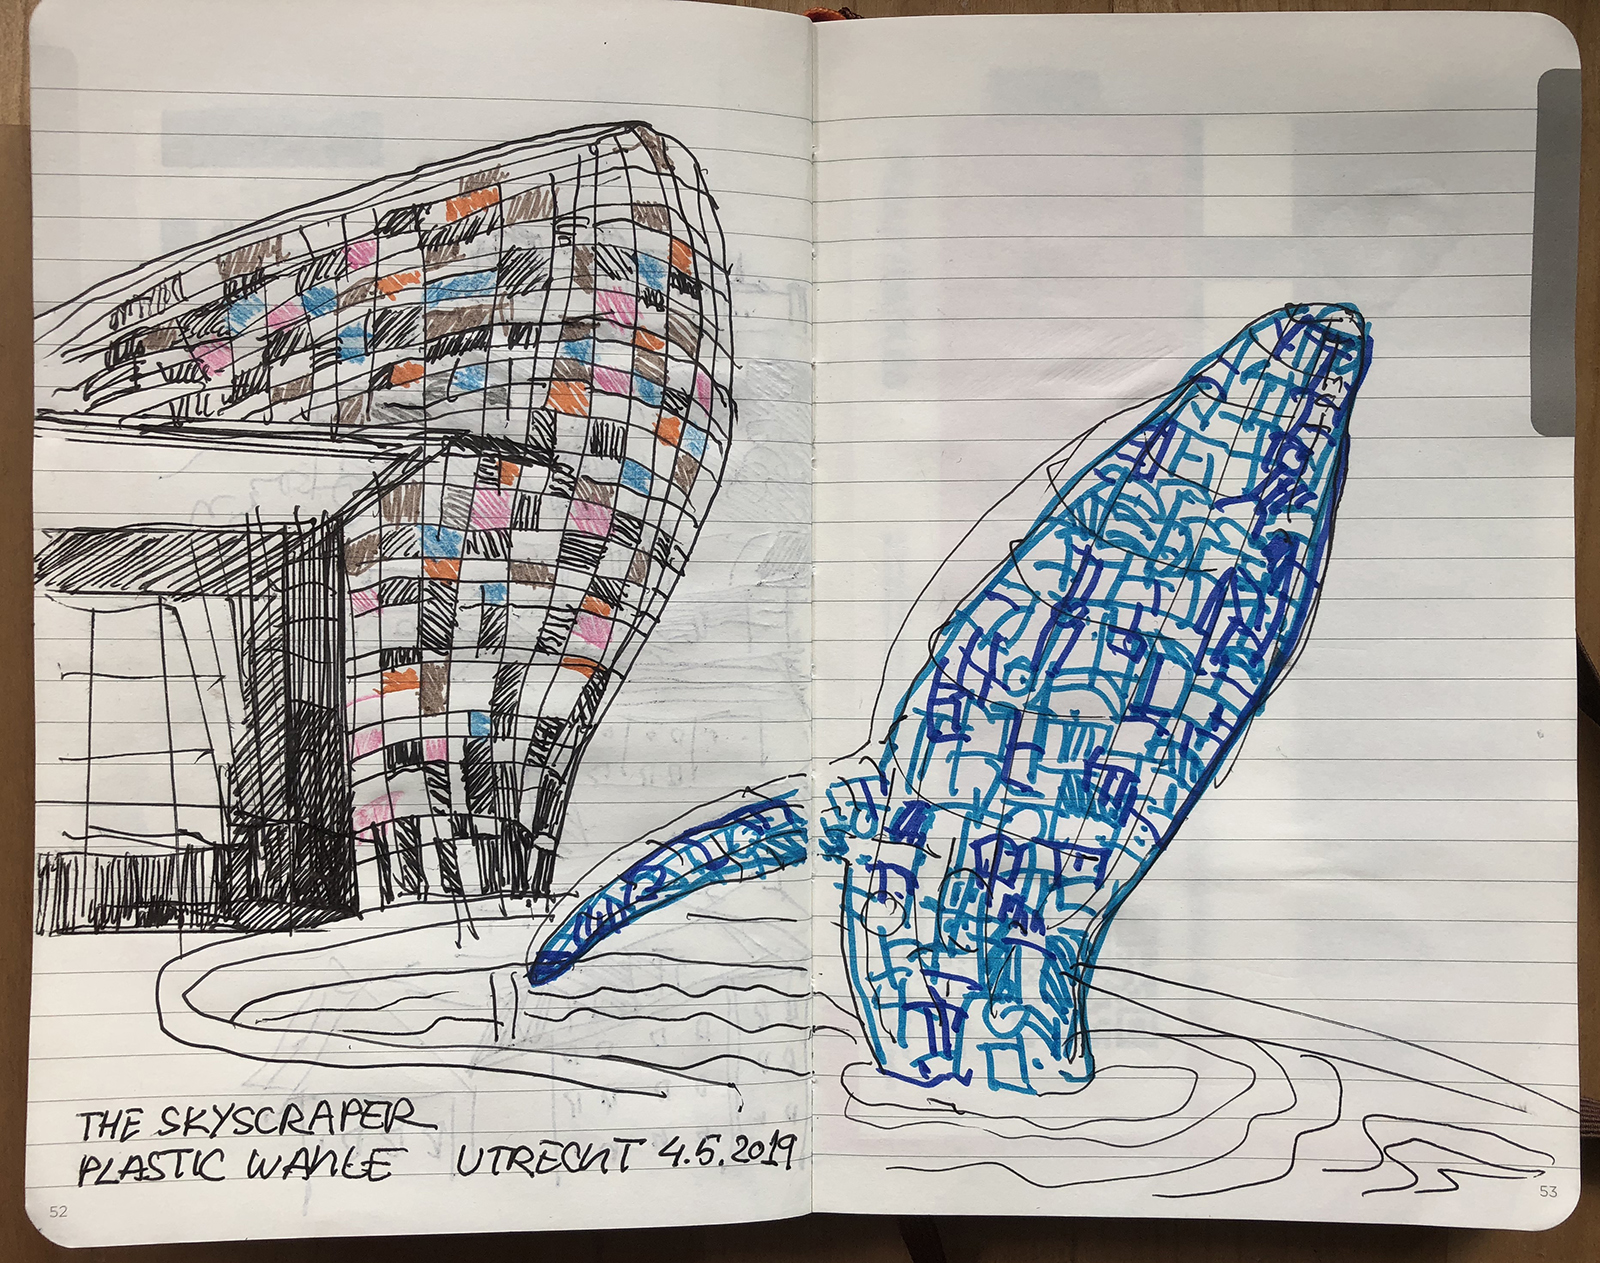 THE SKYSCRAPER
PLASTIC WAHLE UTRECHT 4.5.2019
52
53